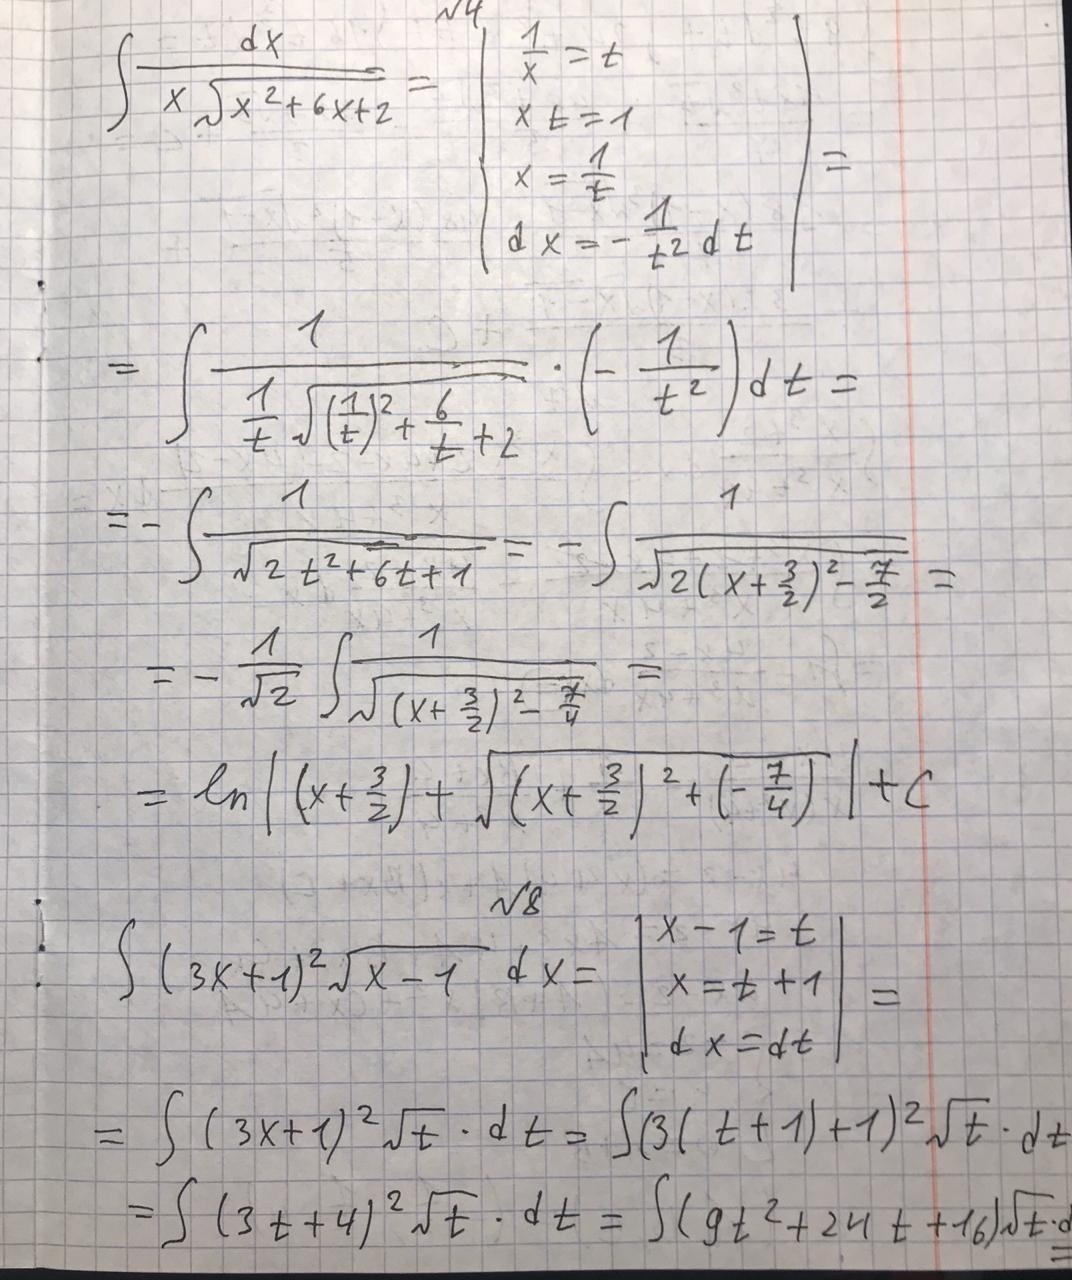 √4
∫ dx / (x √(x²+6x+2)) = | 1/x = t
x t = 1
x = 1/t
dx = - 1/t² dt | =
= ∫ 1 / (1/t √((1/t)² + 6/t + 2)) · (- 1/t²) dt =
= - ∫ 1 / √(2t²+6t+1) = - ∫ 1 / √(2(x+3/2)² - 7/2) =
= - 1/√2 ∫ 1 / √((x+3/2)² - 7/4) =
= ln |(x+3/2) + √((x+3/2)² + (-7/4)) | + C
√8
∫ (3x+1)² √(x-1) dx = | x - 1 = t
x = t + 1
dx = dt | =
= ∫ (3x+1)² √t · dt = ∫ (3(t+1)+1)² √t · dt
= ∫ (3t+4)² √t · dt = ∫ (9t²+24t+16) √t · d
=